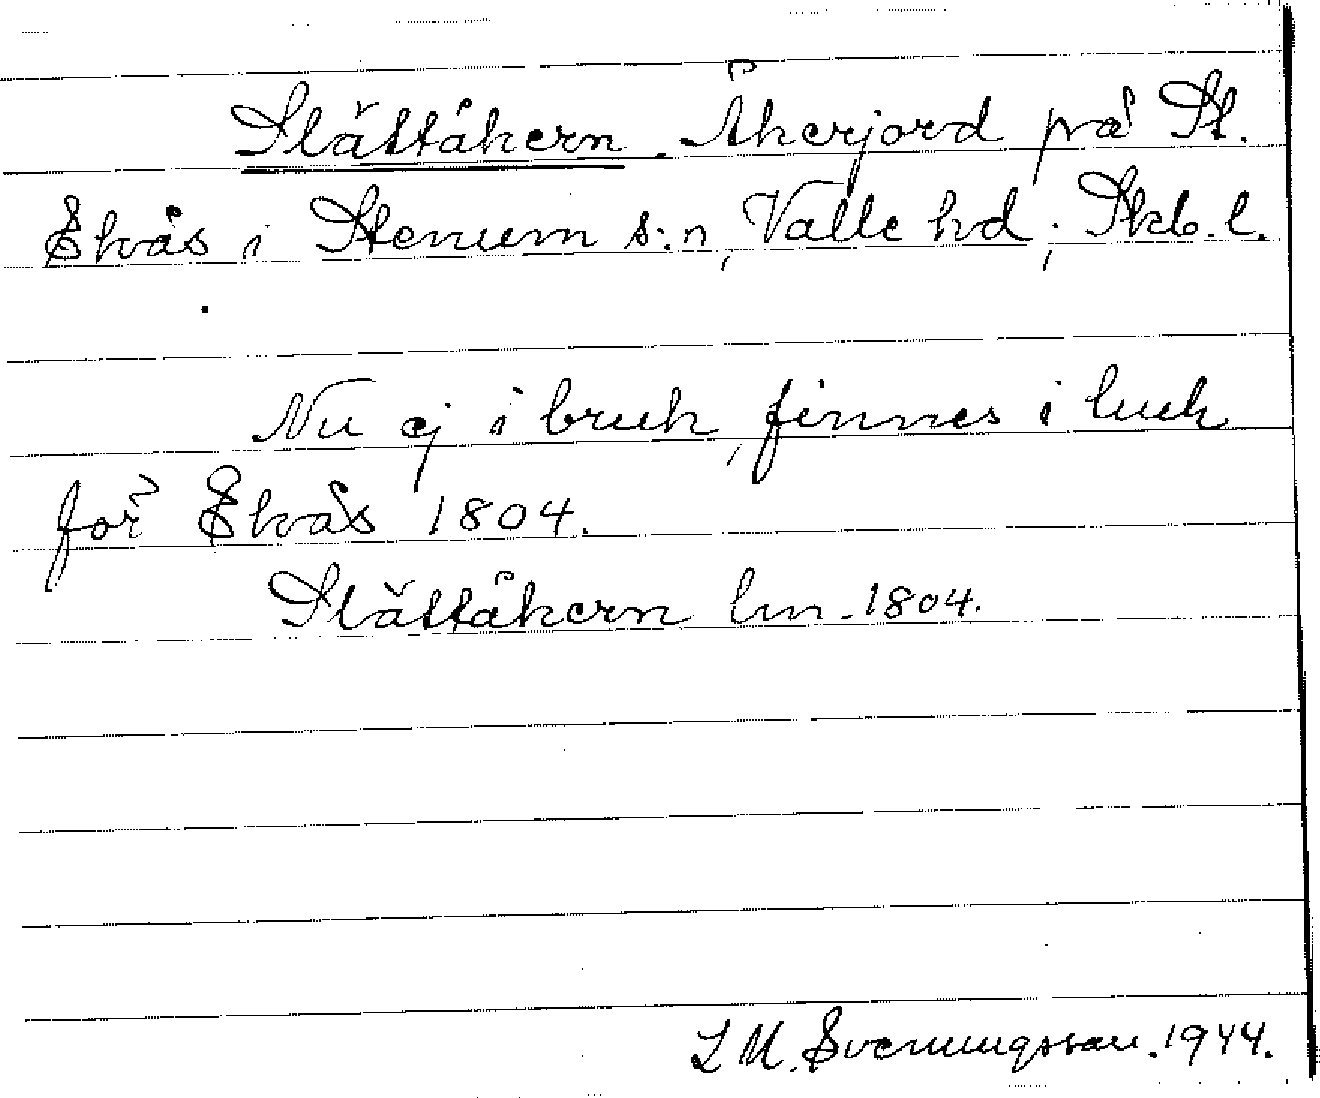 Slättåkern. Åkerjord på St.
Ekvås i Stenum s:n, Valle hd; Skb. l.
Nu ej i bruk, finnes i luck
för Ekvås 1804.
Slättåkern lm. 1804.
L M. Svenungsson. 1944.